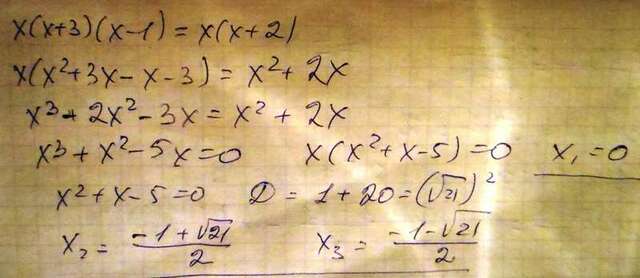 x(x+3)(x-1)=x(x+2)
x(x²+3x-x-3)=x²+2x
x³+2x²-3x=x²+2x
x³+x²-5x=0 x(x²+x-5)=0 x₁=0
x²+x-5=0 D=1+20=(√21)²
x₂=(-1+√21)/2 x₃=(-1-√21)/2